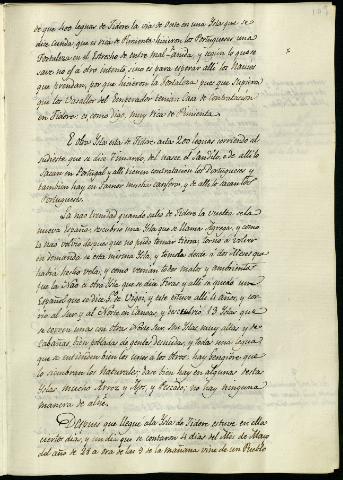 de que 400 leguas de Tidore la via de Oeste en una Isla que se
dice Sunda, que es rica de Pimienta hicieron los Portugueses una
Fortaleza en el Estrecho de entre mal-Zunda, y segun lo que se
save no fue a otro intento sino es para esperar alli la Naves
que biendran, por que hicieron la Fortaleza, pues que supieron
que los Vasallos del Emperador tenian Casa de Contratacion
en Tidore: es, como digo, muy rica de Pimienta.
E otra Isla esta de Tidore acia 200 leguas corriendo al
sudueste que se dice Timando, del nasce el Sandalo, e de alli lo
sacan en Portugal y alli tienen contratacion los Portugueses y
tambien hay en Samos mucha canfora, y de alli la sacan los
Portugueses.
La nao trinidad quando salio de Tidore la vuelta de la
nueva España, descubrió una Isla que se llama Agrega, y como
la nao volvió despues que no pudo tomar tierra, torno a volver
en demanda de esta misma Isla, y tomola desde a dos Meses que
habia hecho vela; y como venian todos malos y ambrientos
fue la Nao a otra Isla que se dice Tiras y alli se quedo un
Español que se dice G.º de Vigo, y este estuvo alli 4 años, y cor-
rio al Sur y al Norte en Canoas, y descubrió 13 Islas que
se corren unas con otras Norte Sur. Son Islas muy altas y de
cabañas bien pobladas de gentes desnudas, y todas una lengua
que se entienden bien los unos a los otros: hay Gengibre que
lo asombran los Naturales; tambien hay en algunas destas
Islas mucho Arroz y Ajos, y Pescado, no hay ninguna
manera de
Despues que llegue a la Isla de Tidore estuve en ella
ciertos dias, y un dia que se contaron 4 dias del Mes de Mayo
del año de 28 a ora de las 9 de la mañana vino de un Pueblo